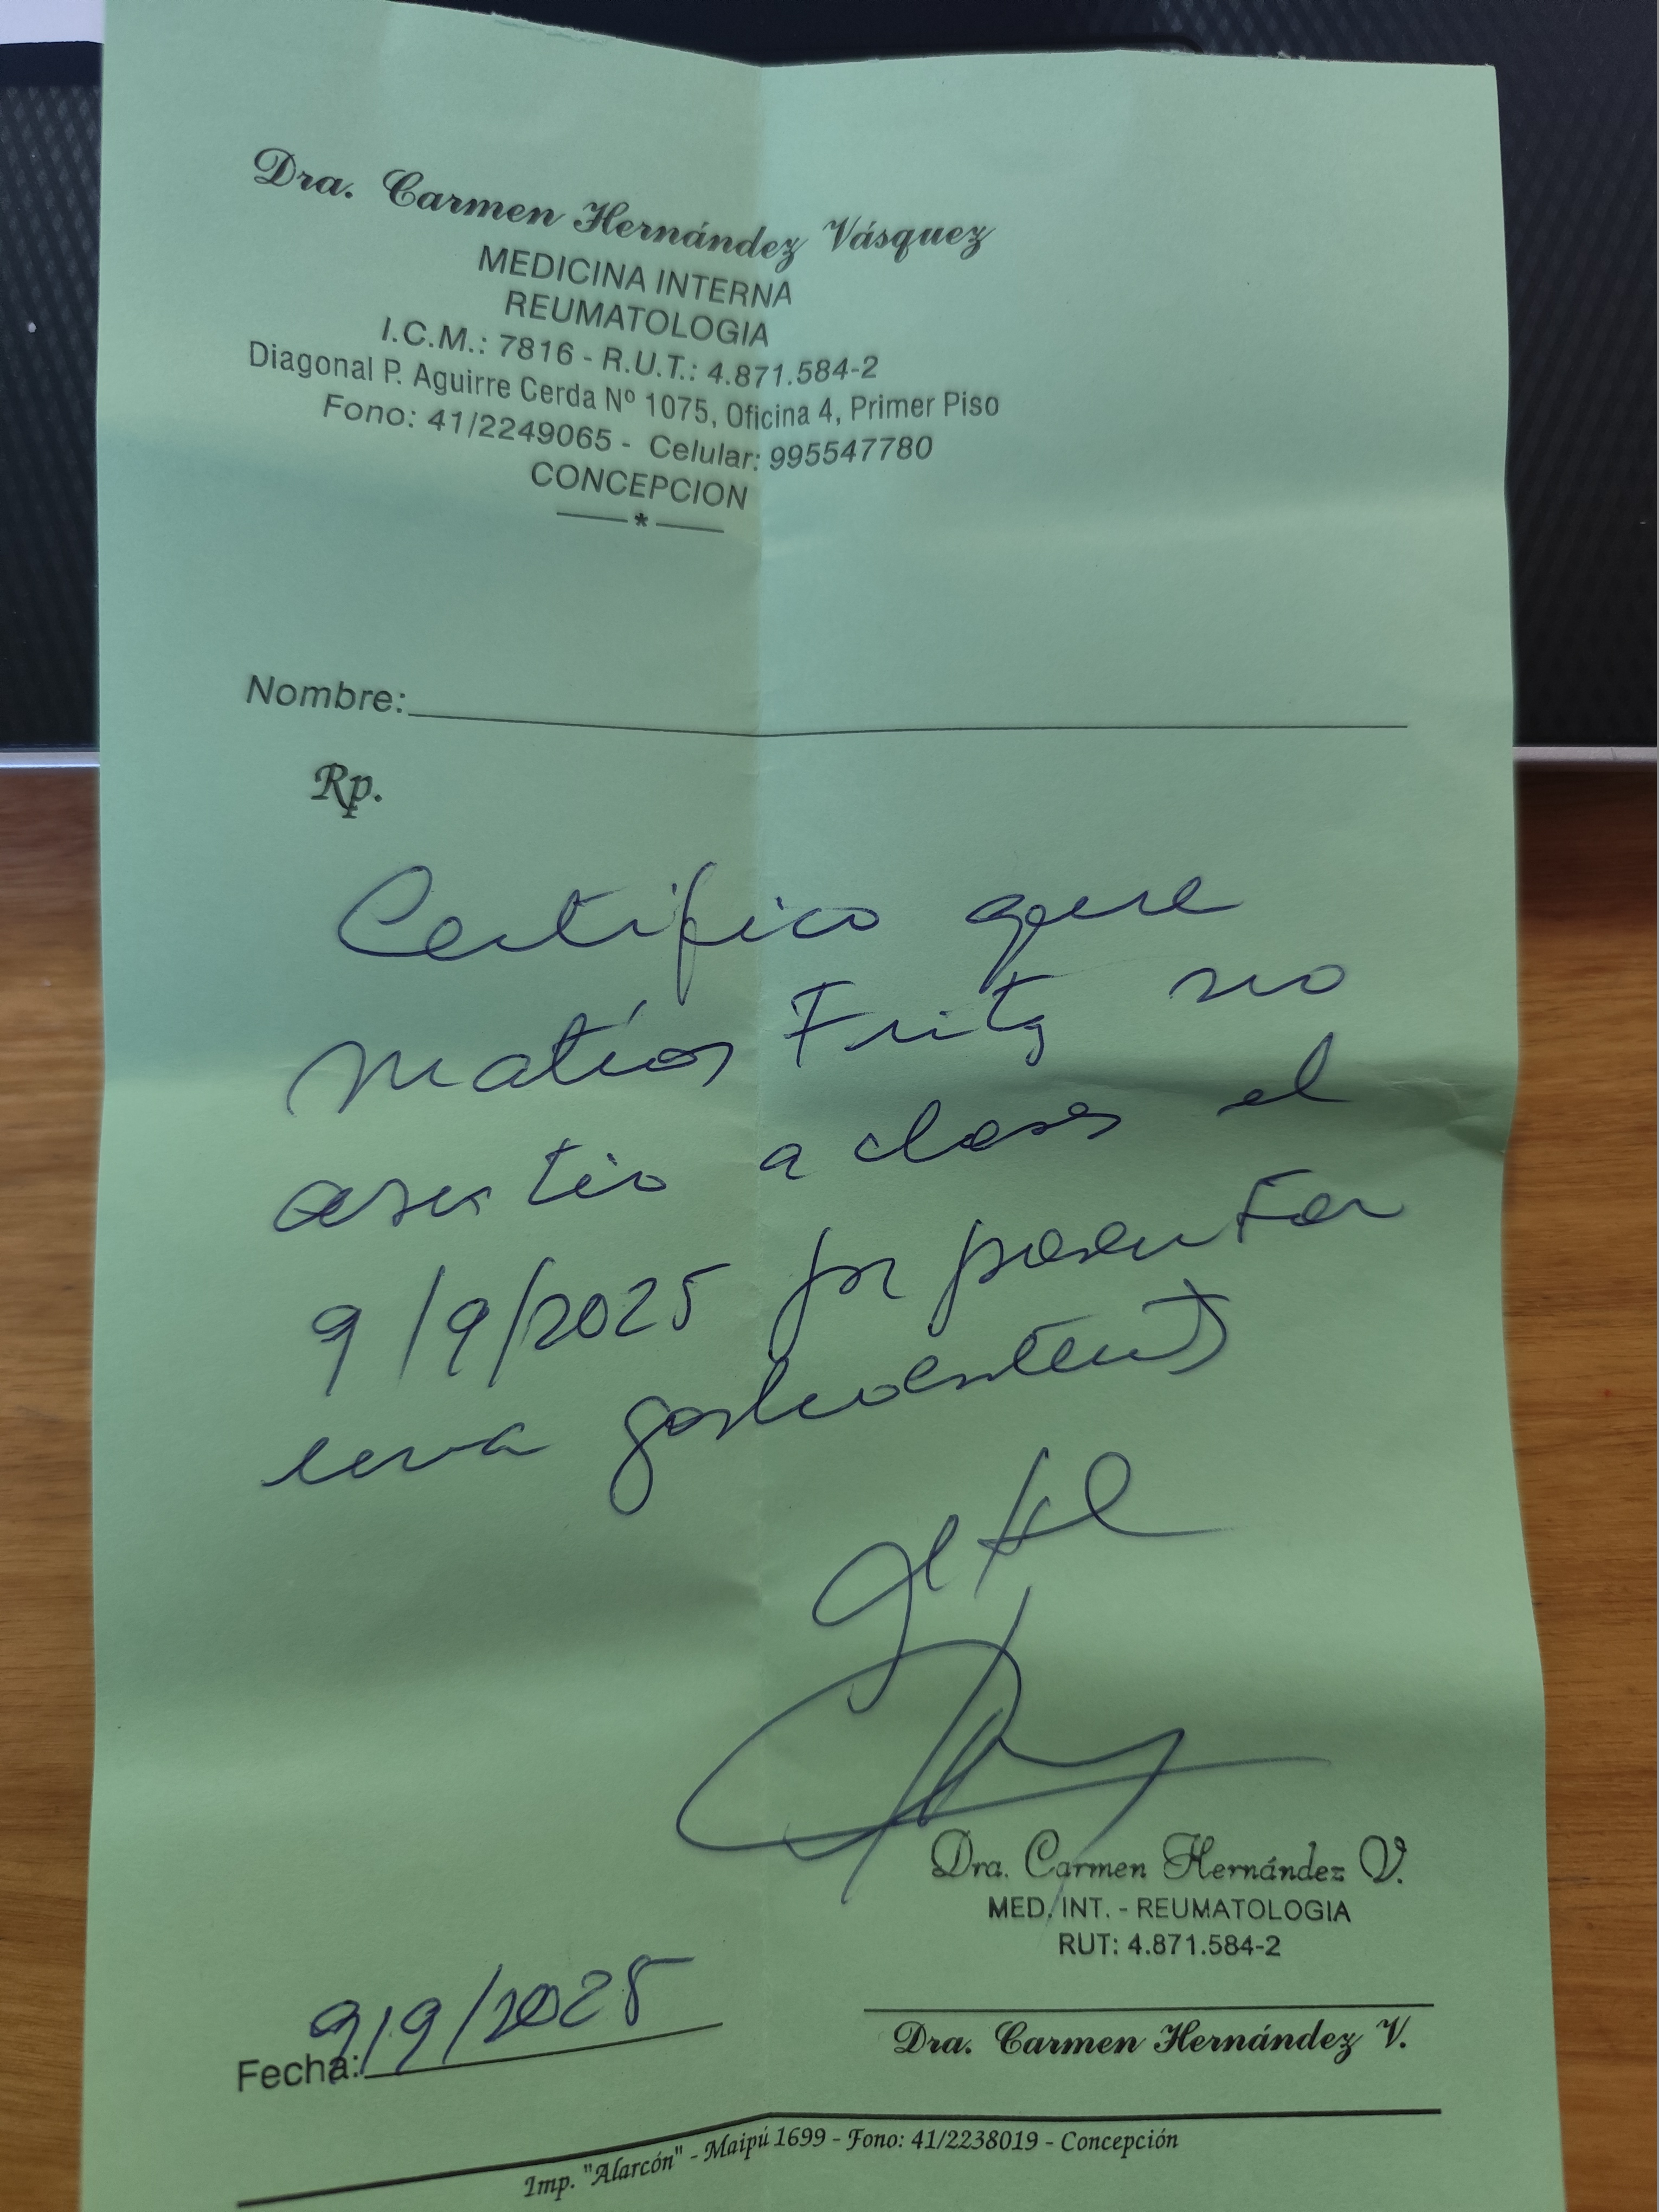 Dra. Carmen Hernández Vásquez
MEDICINA INTERNA
REUMATOLOGIA
I.C.M.: 7816 - R.U.T.: 4.871.584-2
Diagonal P. Aguirre Cerda Nº 1075, Oficina 4, Primer Piso
Fono: 41/2249065 - Celular: 995547780
CONCEPCION
*
Nombre:
Rp.
Certifico que
Matías Fritz no
asistio a clases el
9/9/2025 por presentar
una gastroenteritis
Dra. Carmen Hernández V.
MED. INT. - REUMATOLOGIA
RUT: 4.871.584-2
Fecha: 9/9/2025
Dra. Carmen Hernández V.
Imp. "Alarcón" - Maipú 1699 - Fono: 41/2238019 - Concepción